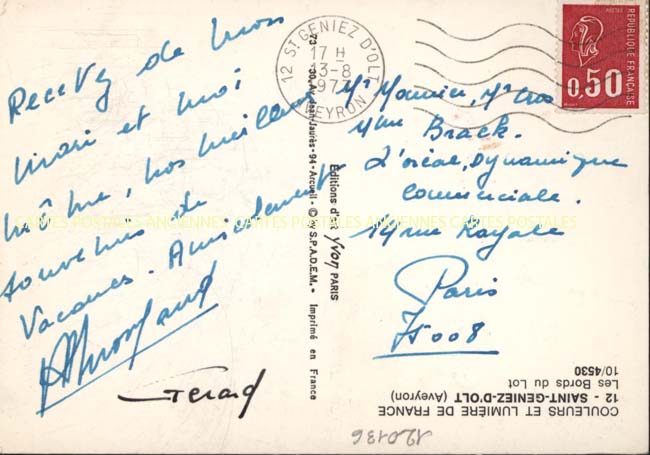 Recevez de mon
mari et moi
même, nos meilleurs
souvenirs de
Vacances. Amicalement
Gérard
73
30, Av. Jean-Jaurès - 94 - Arcueil - © by S.P.A.D.E.M. • Imprimé en France
Editions d'art yvon PARIS
12 ST GENIEZ D'OLT
17 H
13-8
197
AVEYRON
REPUBLIQUE FRANÇAISE
0,50
Mr Mounier, Mr Cros
Mme Brack.
L'oréal, Dynamique
Commerciale.
14 rue Royale
Paris
75008
CARTES POSTALES ANCIENNES CARTES POSTALES ANCIENNES CARTES POSTALES
COULEURS ET LUMIÈRE DE FRANCE
12 - SAINT-GENIEZ-D'OLT (Aveyron)
Les Bords du Lot
10/4530
120136